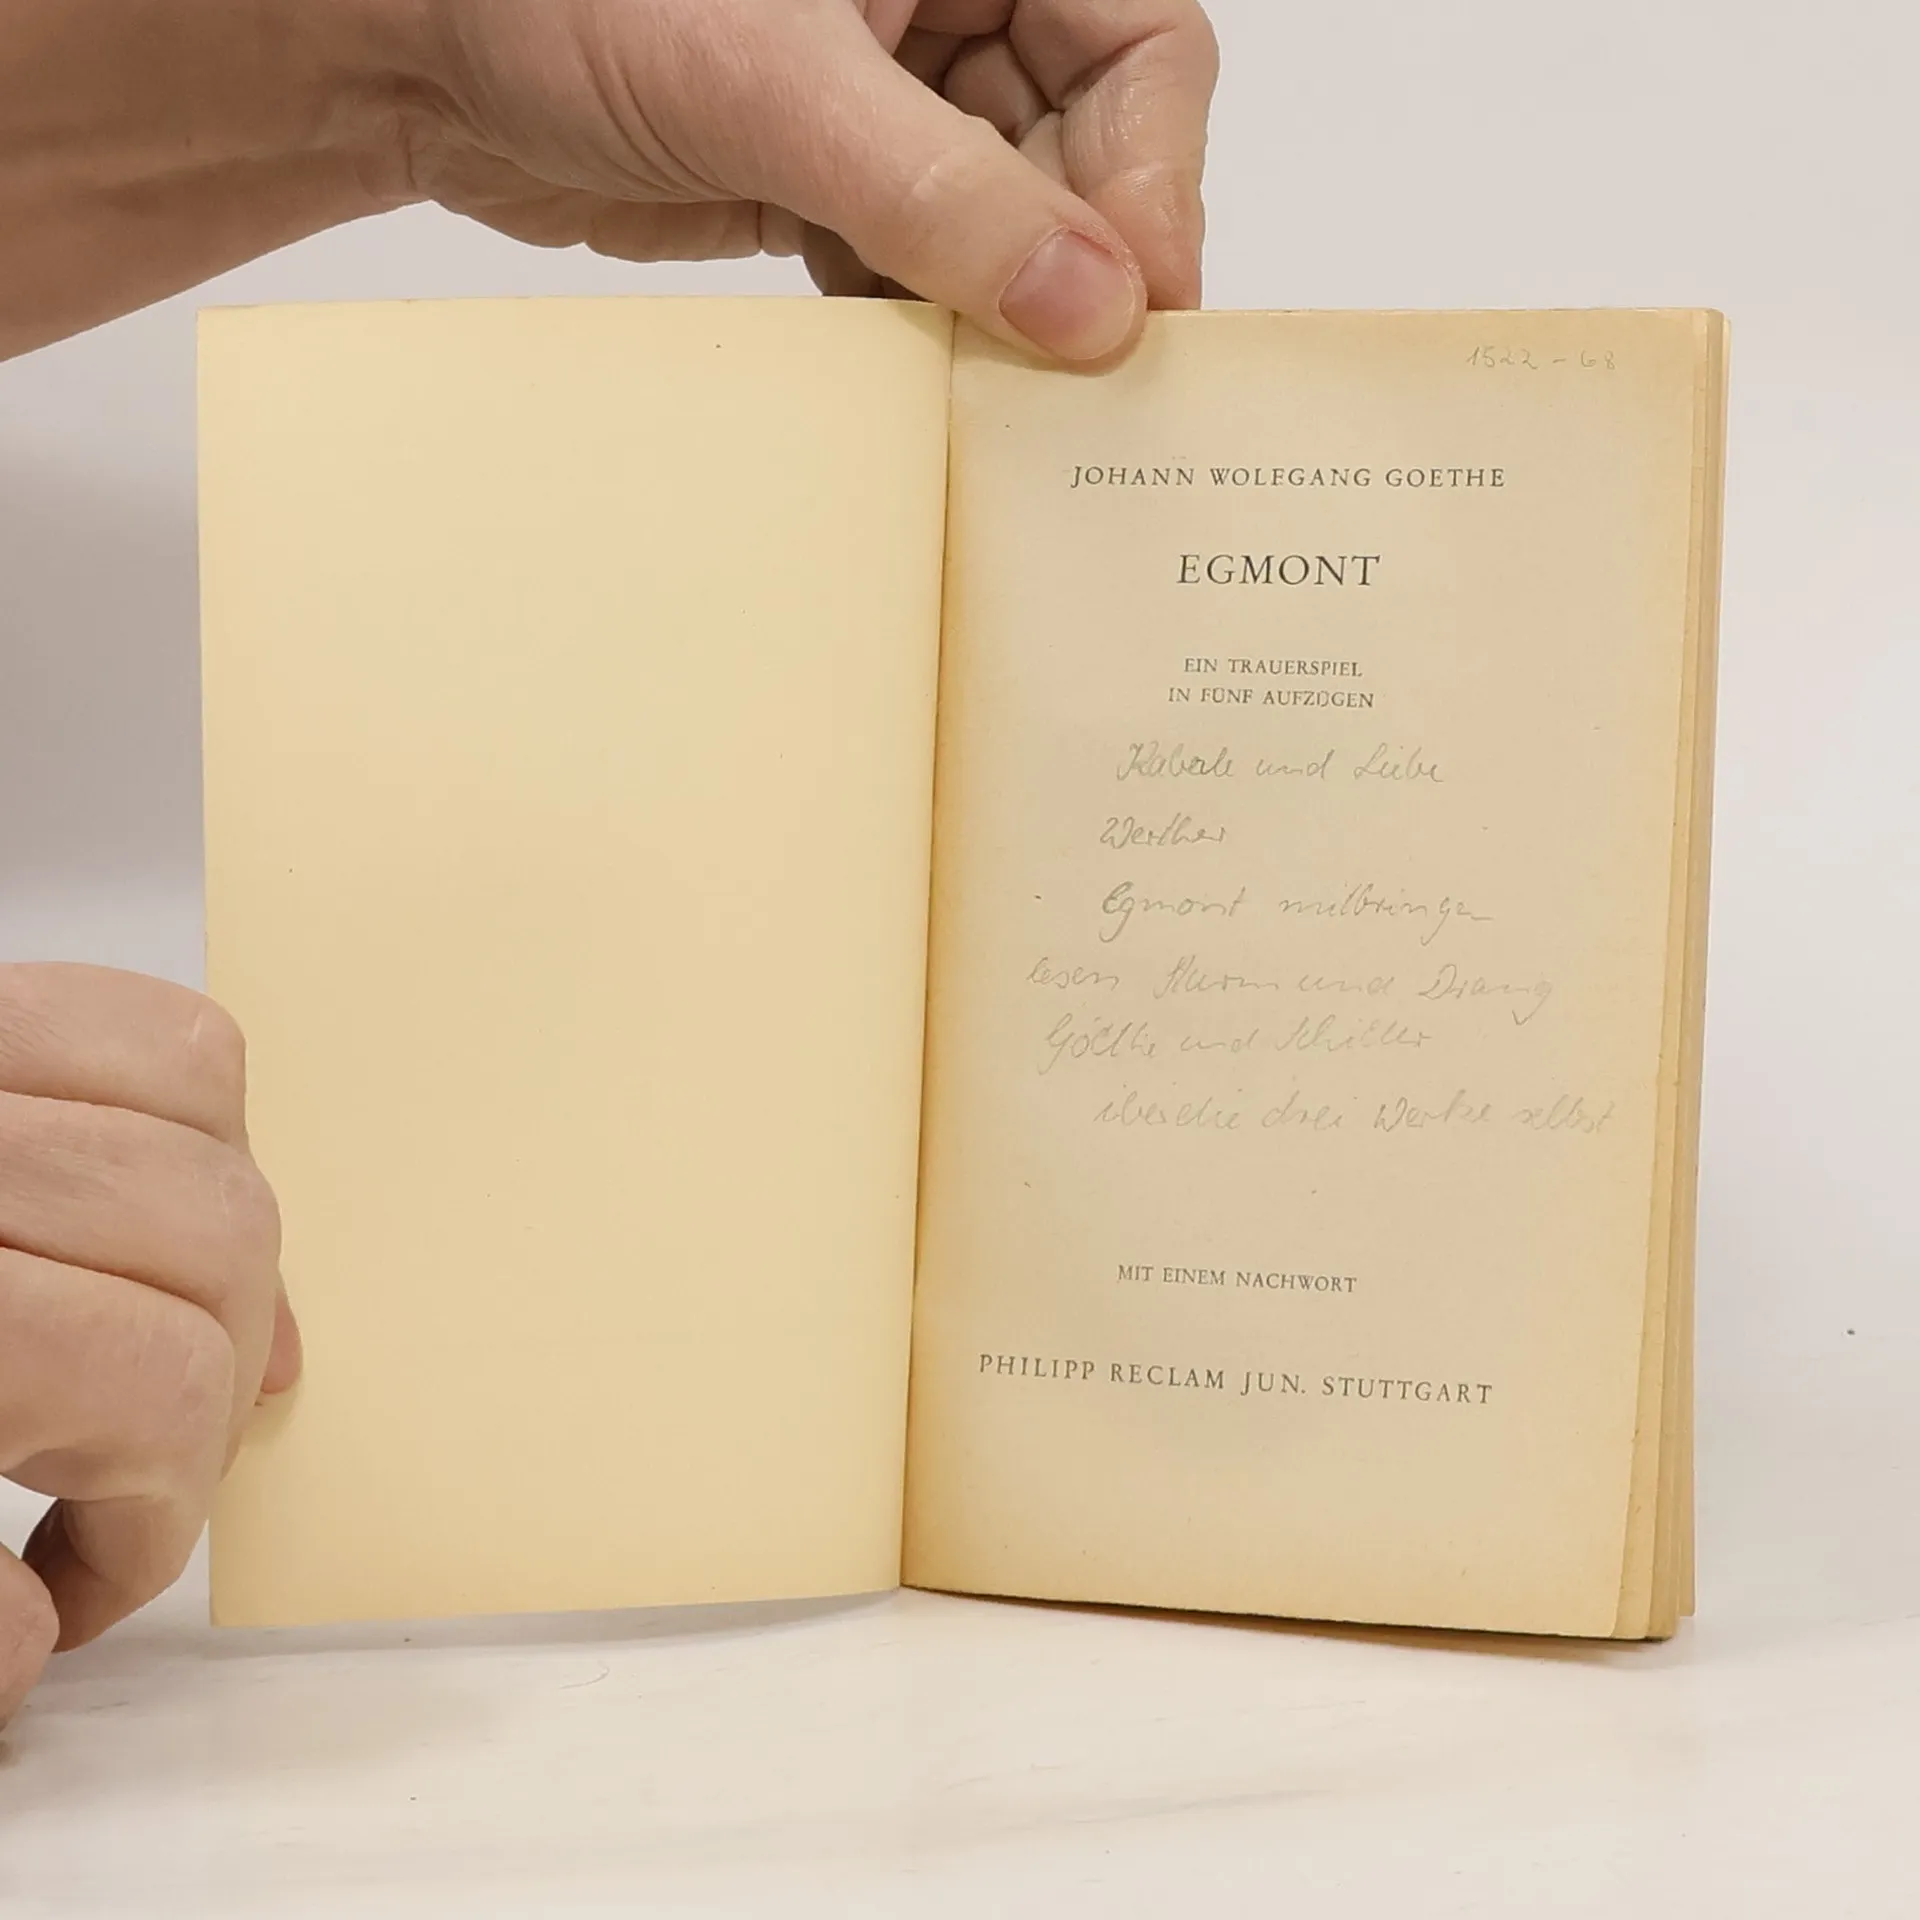 1522 - 68
JOHANN WOLFGANG GOETHE
EGMONT
EIN TRAUERSPIEL
IN FÜNF AUFZÜGEN
Kabale und Liebe
Werther
Egmont mitbringen
lesen Sturm und Drang
Göthe und Schiller
über die drei Werke selbst
MIT EINEM NACHWORT
PHILIPP RECLAM JUN. STUTTGART